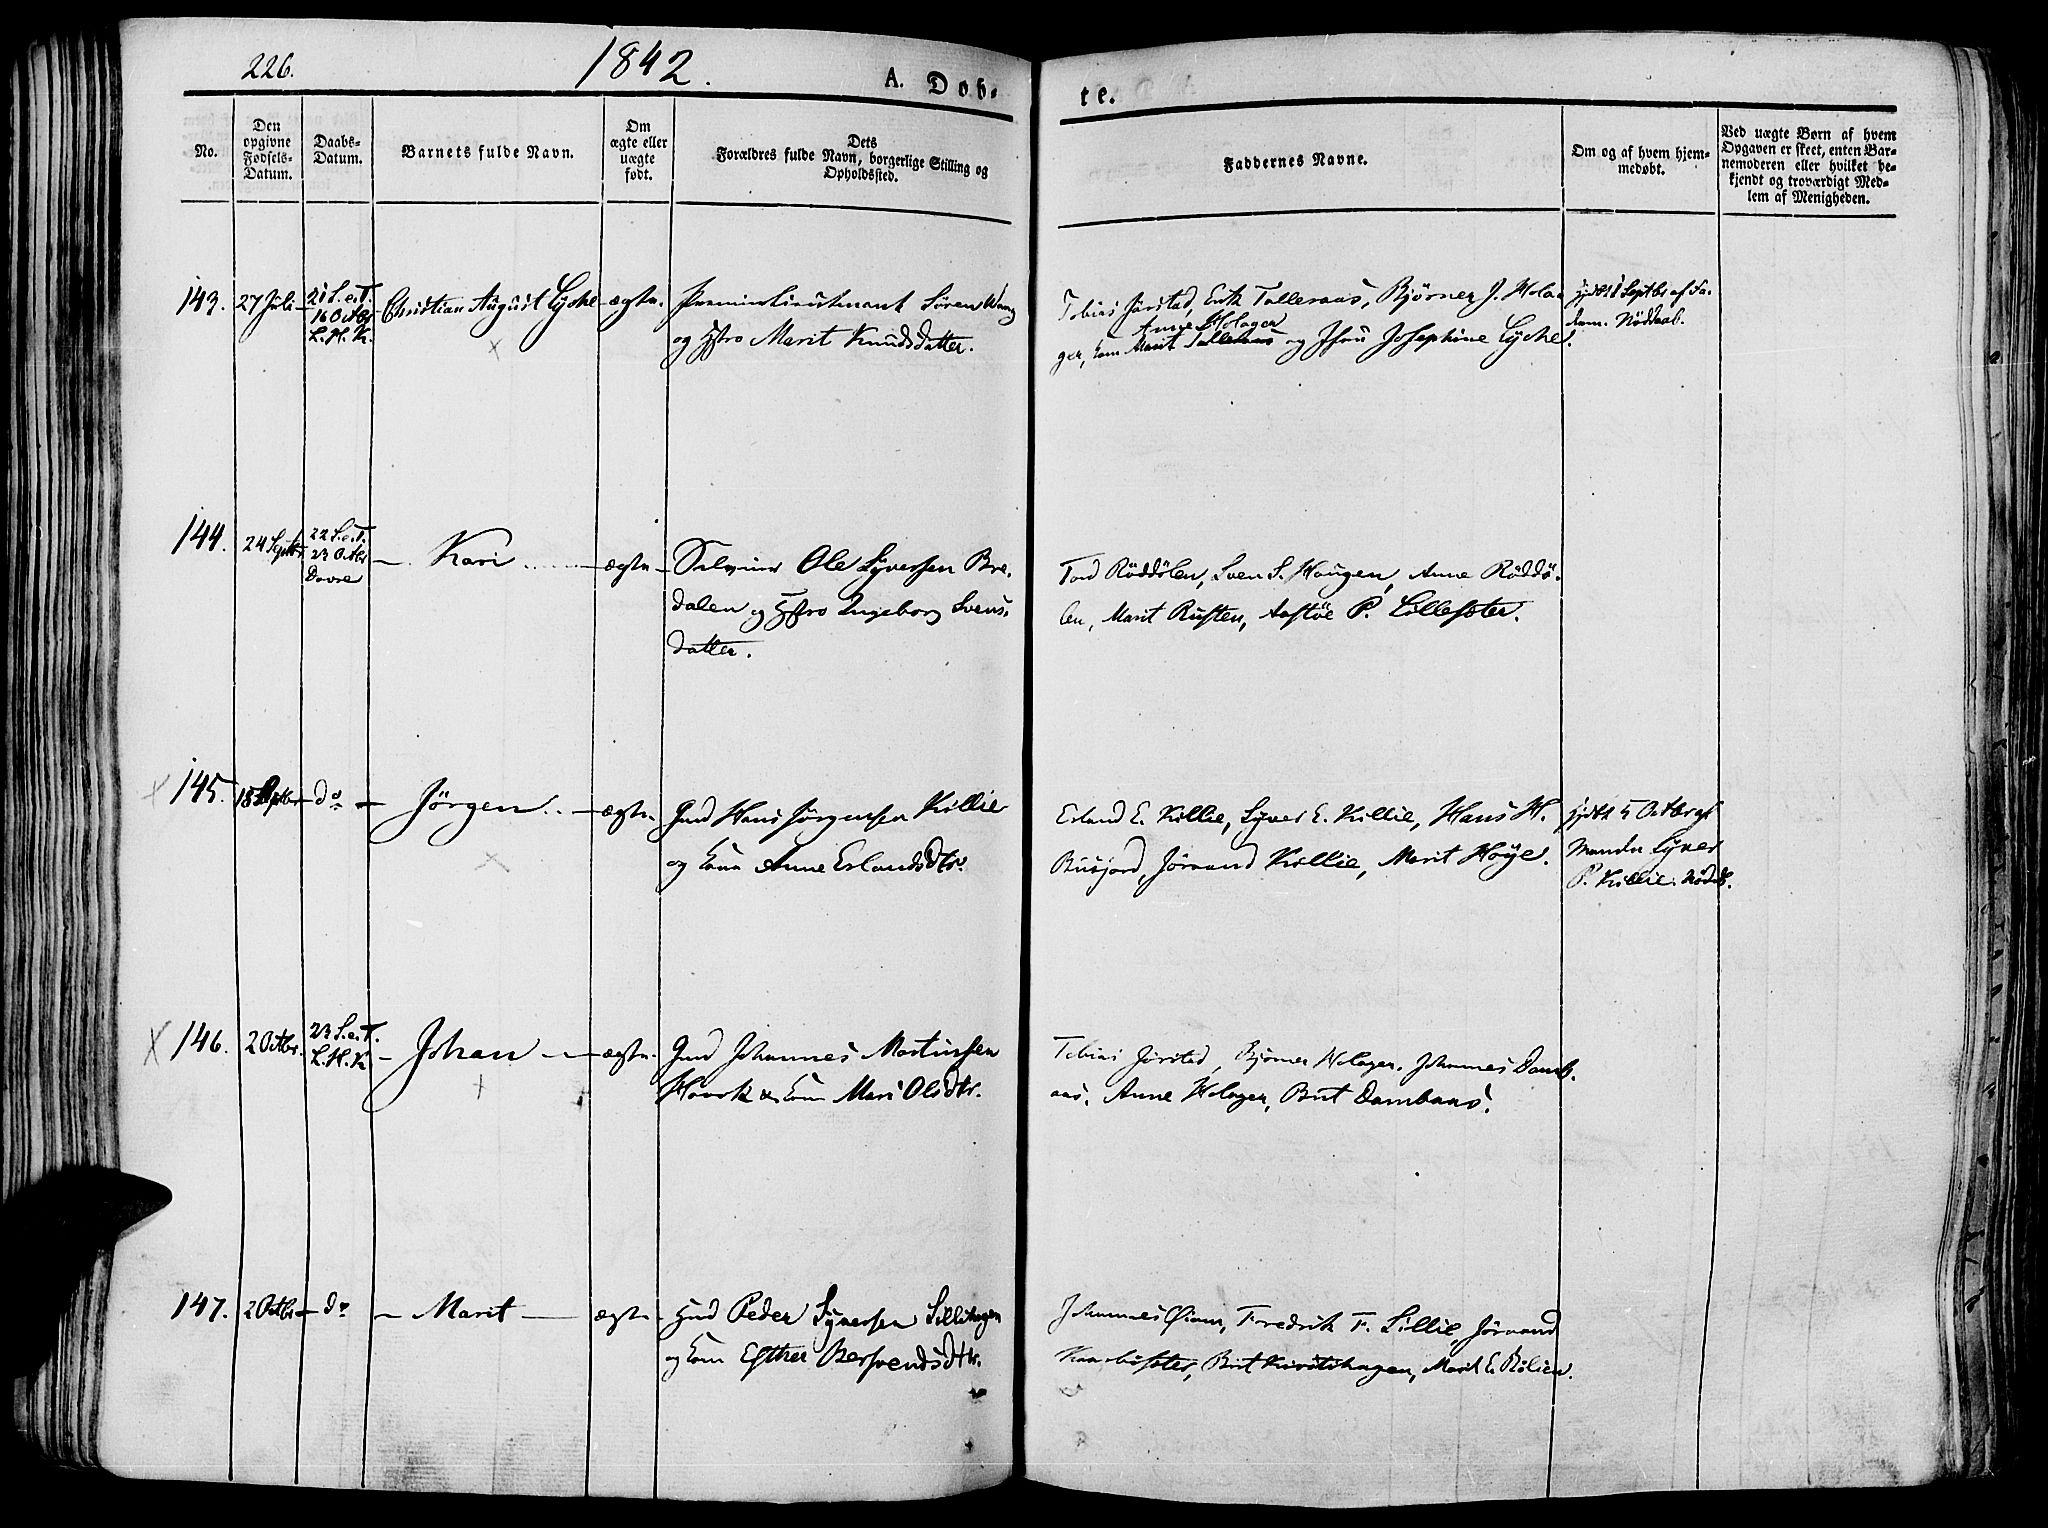 226.
1842.
A. Døb-
te.
No.
Den opgivne Fødsels-Datum.
Daabs-Datum.
Barnets fulde Navn.
Om ægte eller uægte født.
Dets Forældres fulde Navn, borgerlige Stilling og Opholdssted.
Faddernes Navne.
Om og af hvem hjem-
medøbt.
Ved uægte Børn af hvem
Opgaven er skeet, enten Bar-
nemoderen eller hvilket be-
kjendt og troværdigt Med-
lem af Menigheden.
143. 27 Juli 21 S. e. T. 16 Octbr L. H. K. Christian August Lyche ægte Premierlieutenant Sören Wang
og Hstro Marit Knudsdatter.
Tobias Jörstad, Erik Tolleraas, Björner J. Holaa
ger, Anne Holager
Marit Tolleraas og Jfru Josephine Lyche.
hjdbt 8 Septbr af Fa-
deren. Nöddaab.
144. 24 Septbr 22 S. e. T. 23 Octbr Dovre Kari ægte Ole Syversen Bre-
dalen og Hstro Ingeborg Svens-
datter.
Tord Röddölen, Sven S. Haugen, Anne Röddö-
len, Marit Rusten, P. Lillesæter.
145. 18 Septbr do Jörgen ægte Gmd Hans Jörgensen Killie
og Kone Anne Erlandsdtr.
Erland E. Killie, Syver E. Killie, Hans H.
Busjord, Jöraand Killie, Marit Höye.
hjdbt 5 Octbr af
Manden Syver
P. Killie. Nöddb.
146. 2 Octbr. 23 S. e. T. L. H. K. Johan ægte Gmd Johannes Mortensen
Hovrk & Kone Mari Olsdtr.
Tobias Jörstad, Björner Holager, Johannes Domb-
aas, Anne Holager, Brit Dombaas.
147. 2 Octbr do Marit ægte Hmd Peder Syversen Lillihagen
og Kone Esther Bersvendsdtr.
Johannes Öien, Fredrik F. Lillie, Jöraand
Brit Kirstihagen, Marit E. Bölien.